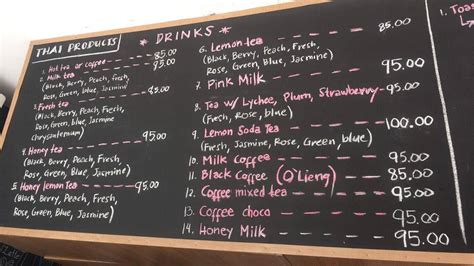 THAI PRODUCTS
* DRINKS *
1. Hot tea or coffee - - - - 85.00
2. Milk tea - - - - - - - 95.00
(Black, Berry, Peach, Fresh,
Rose, Green, Blue, Jasmine)
3. Fresh tea - - - - - - - 85.00
(Black, Berry, Peach, Fresh,
Rose, Green, blue, Jasmine
Chrysantemum)
4. Honey tea - - - - - - 95.00
(Black, Berry, Peach, Fresh,
Rose, Green, blue, Jasmine)
5. Honey lemon Tea - - - - 95.00
(Black, Berry, Peach, Fresh,
Rose, Green, Blue, Jasmine)
6. Lemon tea - - - - - - 85.00
(Black, Berry, Peach, Fresh,
Rose, Green, Blue, Jasmine)
7. Pink Milk - - - - - - 95.00
8. Tea w/ Lychee, Plum, Strawberry - 95.00
(Fresh, Rose, blue)
9. Lemon Soda Tea - - - - - 100.00
(Fresh, Jasmine, Rose, Green, blue)
10. Milk Coffee - - - - - - 95.00
11. Black Coffee (O'Lieng) - - - 85.00
12. Coffee mixed tea - - - - - 95.00
13. Coffee choco - - - - - - 95.00
14. Honey Milk - - - - - - 95.00
1.